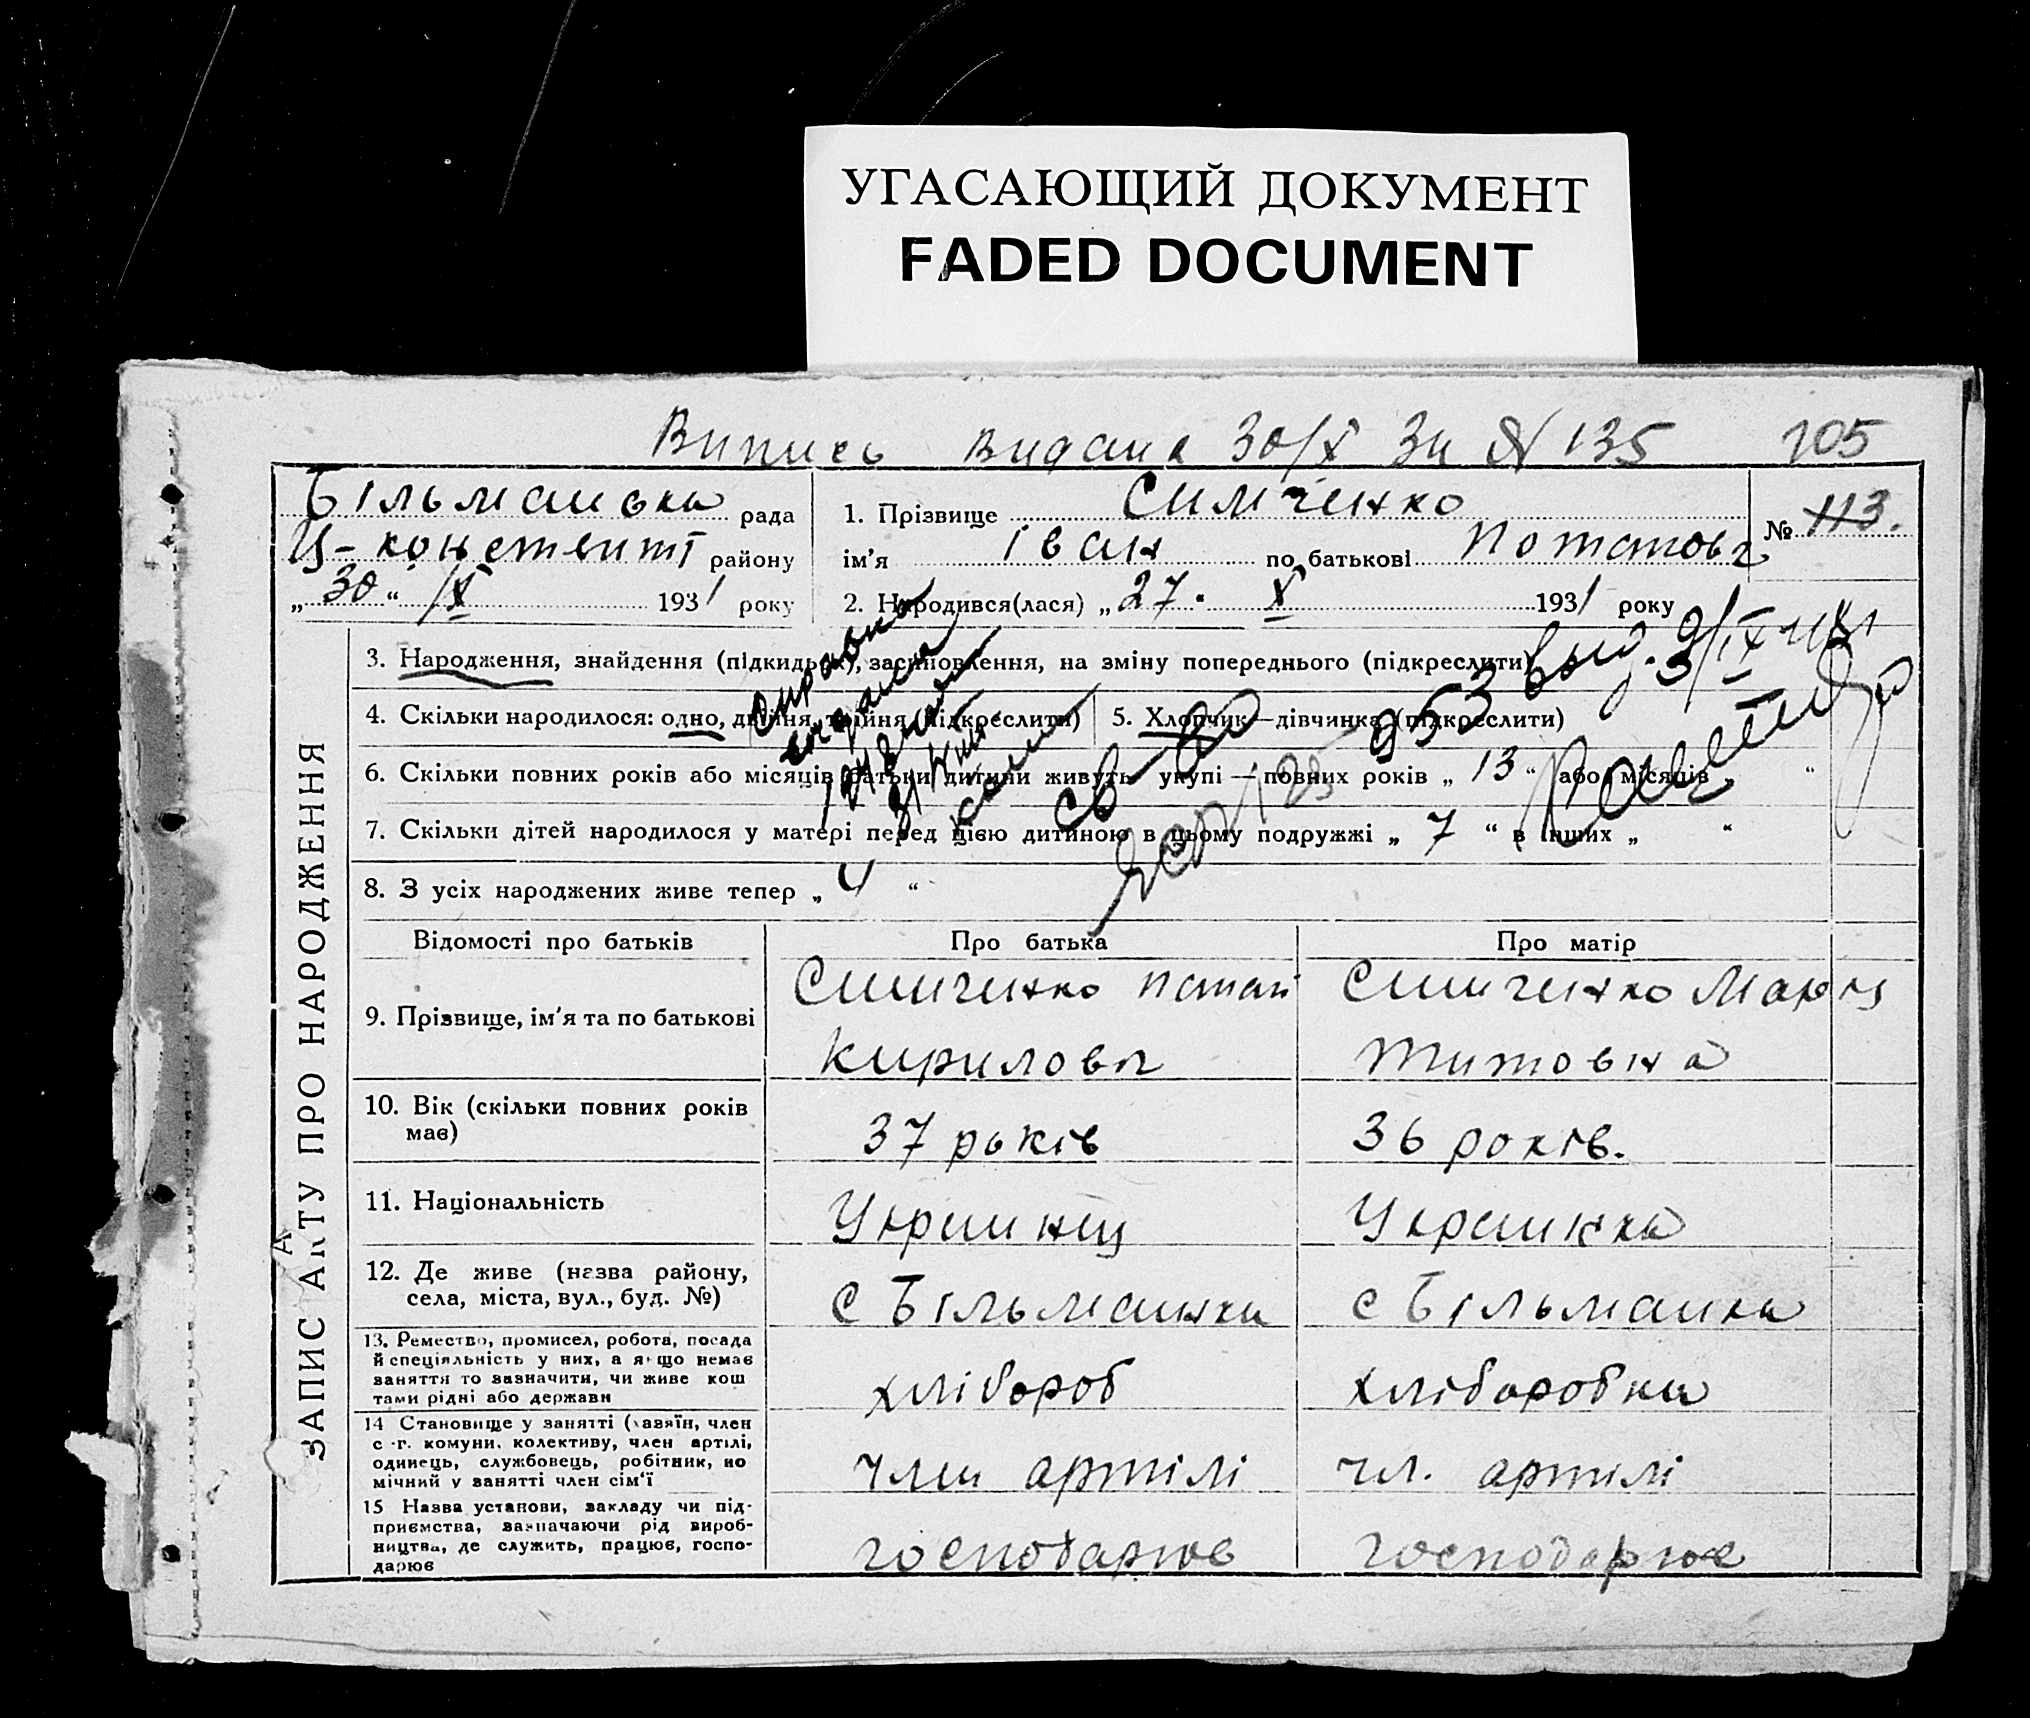 УГАСАЮЩИЙ ДОКУМЕНТ
FADED DOCUMENT
Випись видана 30/X За N 135 105
Більманська рада
Ц-констянті району
„30“ X 1931 року
1. Прізвище Симченко
ім'я Іван по батькові Потапович
№ 113.
2. Народився(лася) „27“ X 1931 року
ЗАПИС АКТУ ПРО НАРОДЖЕННЯ
3. Народження, знайдення (підкидьок), засиновлення, на зміну попереднього (підкреслити)
4. Скільки народилося: одно, двійня, трійня (підкреслити)
5. Хлопчик—дівчинка (підкреслити)
6. Скільки повних років або місяців батьки дитини живуть укупі — повних років „ 13 “ або місяців „ “
7. Скільки дітей народилося у матері перед цією дитиною в цьому подружжі „ 7 “ в інших „ “
8. З усіх народжених живе тепер „ 4 “
справка
св-во
953 выд. 9/IX
Відомості про батьків Про батька Про матір
9. Прізвище, ім'я та по батькові
Симченко Потап
Кирилович
Симченко Мария
Титовна
10. Вік (скільки повних років
має)
37 років
36 років.
11. Національність
Украинец
Украинка
12. Де живе (назва району,
села, міста, вул., буд. №)
с Більманка
с Більманка
13. Ремество, промисел, робота, посада
й спеціяльність у них, а якщо немає
заняття то зазначити, чи живе кош
тами рідні або держави
хлібороб
хлібаробка
14 Становище у занятті (хазяїн, член
с.-г. комуни, колективу, член артілі,
одинець, службовець, робітник, по
мічний у занятті член сім'ї
член артілі
чл. артілі
15 Назва установи, закладу чи під-
приємства, зазначаючи рід вироб-
ництва, де служить, працює, госпо-
дарює
господарює
господарює